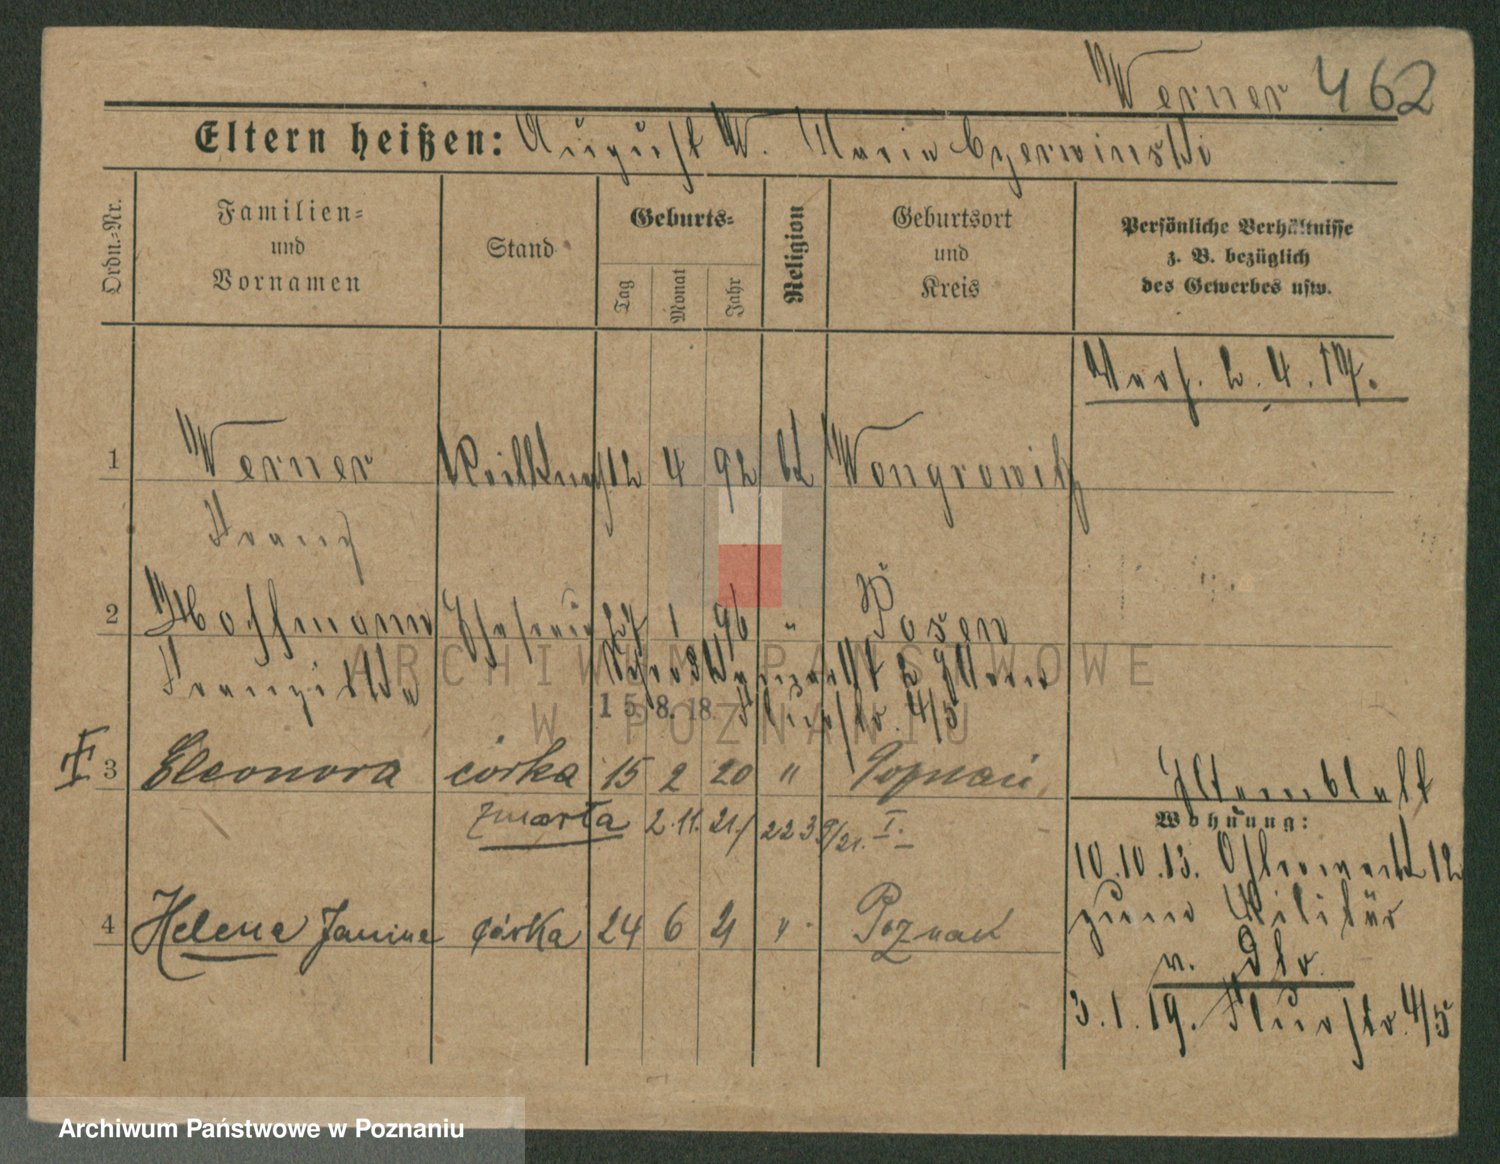 Werner 462
Eltern heißen: August W. Maria Czerwinski
Ordn.-Nr.
Familien-
und
Vornamen
Stand
Geburts-
Tag
Monat
Jahr
Religion
Geburtsort
und
Kreis
Persönliche Verhältnisse
z. B. bezüglich
des Gewerbes usw.
Verh. 2. 4. 17.
1 Werner 12 4 92 kt Wongrowitz
Franz
2 Hoffmann Ehefrau 1 96 " Posen
Franziska
15. 8. 18. Flurstr. 4/5
3 Eleonora córka 15 2 20 " Poznań
zmarła 2.11.21. 2239/21. I.
Stammblatt
Wohnung:
10.10.13. 12
zum Militär
v. Dtr.
3.1.19. Flurstr. 4/5
4 Helena Janina córka 24 6 21 " Poznań
ARCHIWUM PAŃSTWOWE
W POZNANIU
Archiwum Państwowe w Poznaniu